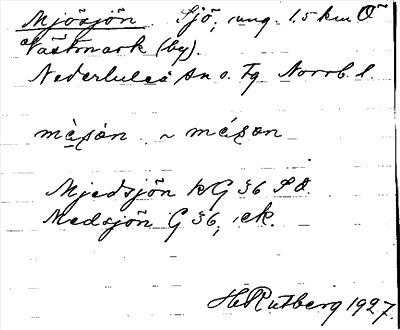 Mjösjön Sjö, ung. 1.5 km O
Västmark (by).
Nederluleå sn o. Tg Norrb. l.
mὰsøn ~ mésøn
Mjedsjön kG 36 Sö.
Medsjön G 36, ek.
H. Rutberg 1927.